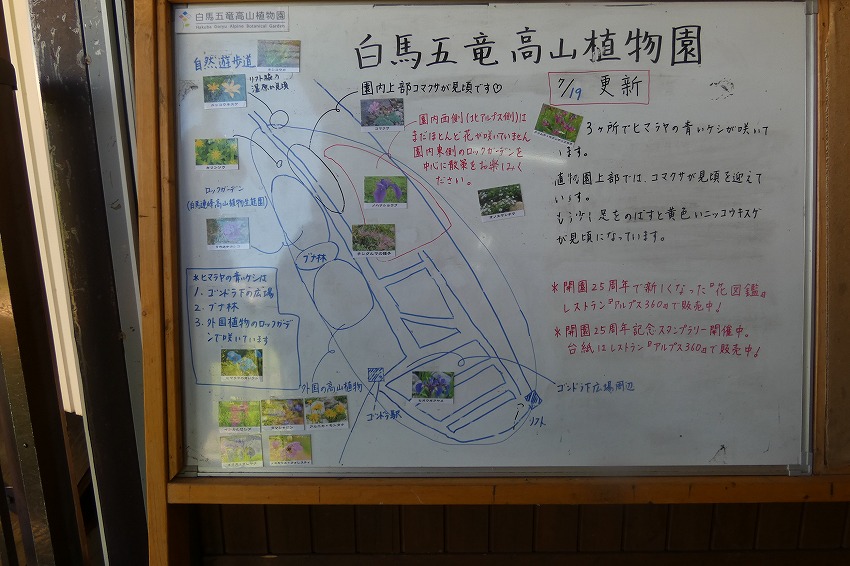 白馬五竜高山植物園
Hakuba Goryu Alpine Botanical Garden
白馬五竜高山植物園
7/19 更新
自然遊歩道
リフト線の
湿原が見頃
園内上部コマクサが見頃です♡
コマクサ
園内西側(北アルプス側)は
まだほとんど花が咲いていません
園内東側のロックガーデンを
中心に散策をお楽しみく
ださい。
3ヶ所でヒマラヤの青いケシが咲いて
います。
植物園上部では、コマクサが見頃を迎えて
います。
もう少し足をのばすと黄色いニッコウキスゲ
が見頃になっています。
*開園25周年で新しくなった『花図鑑』
レストラン『アルプス360』で販売中!
*開園25周年記念スタンプラリー開催中。
台紙はレストラン『アルプス360』で販売中!
ロックガーデン
(白馬連峰高山植物生態園)
ブナ林
*ヒマラヤの青いケシは
1. ゴンドラ下の広場
2. ブナ林
3. 外国植物のロックガーデ
ンで咲いています
外国の高山植物
ゴンドラ駅
リフト
ゴンドラ下広場周辺